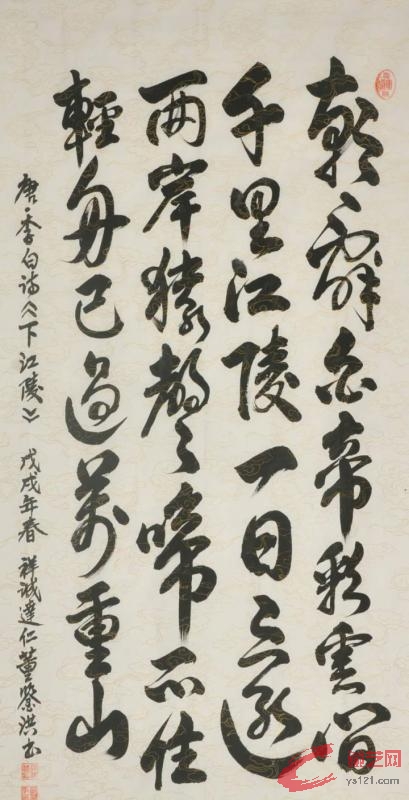 朝辭白帝彩雲間
千里江陵一日還
兩岸猿聲啼不住
輕舟已過萬重山
唐·李白詩《下江陵》 戊戌年春 祥誠達仁董鑒洪書
ys121.com